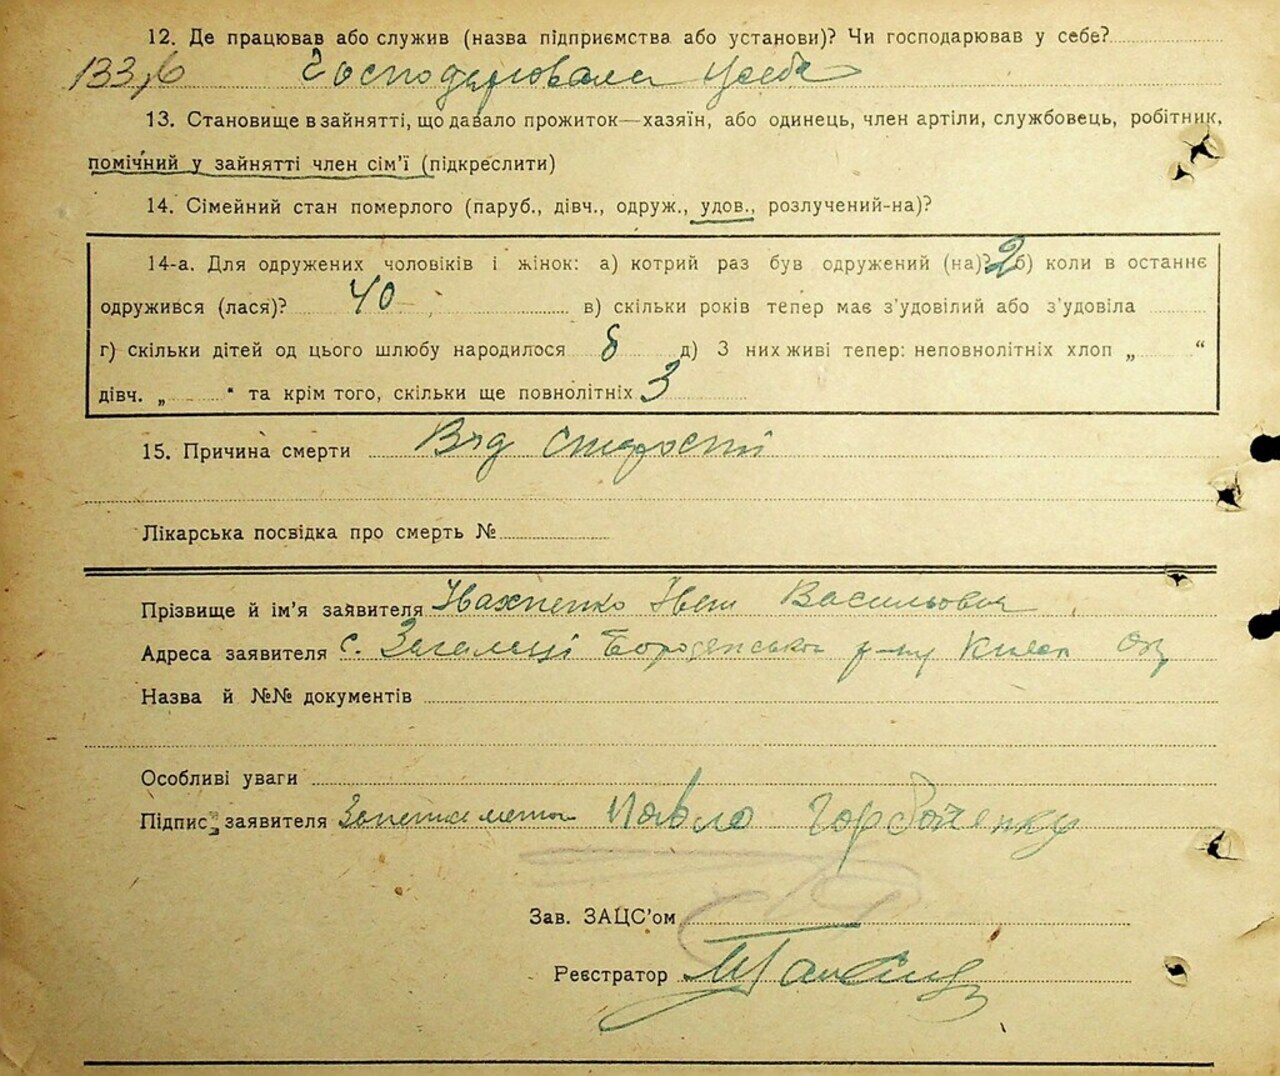 12. Де працював або служив (назва підприємства або установи)? Чи господарював у себе?
133,6 Господарювала у себе
13. Становище в зайнятті, що давало прожиток—хазяїн, або одинець, член артіли, службовець, робітник,
помічний у зайнятті член сім'ї (підкреслити)
14. Сімейний стан померлого (паруб., дівч., одруж., удов., розлучений-на)?
14-а. Для одружених чоловіків і жінок: а) котрий раз був одружений (на)? 2 б) коли в останнє
одружився (лася)? 40 в) скільки років тепер має з'удовілий або з'удовіла
г) скільки дітей од цього шлюбу народилося 8 д) З них живі тепер: неповнолітніх хлоп „ “
дівч. „ “ та крім того, скільки ще повнолітніх 3
15. Причина смерти Від старості
Лікарська посвідка про смерть №
Прізвище й ім'я заявителя Іван Васильович
Адреса заявителя с. Загальці Бородянського р-ну Київ
Назва й №№ документів
Особливі уваги
Підпис заявителя Павло
Зав. ЗАЦС'ом
Реєстратор